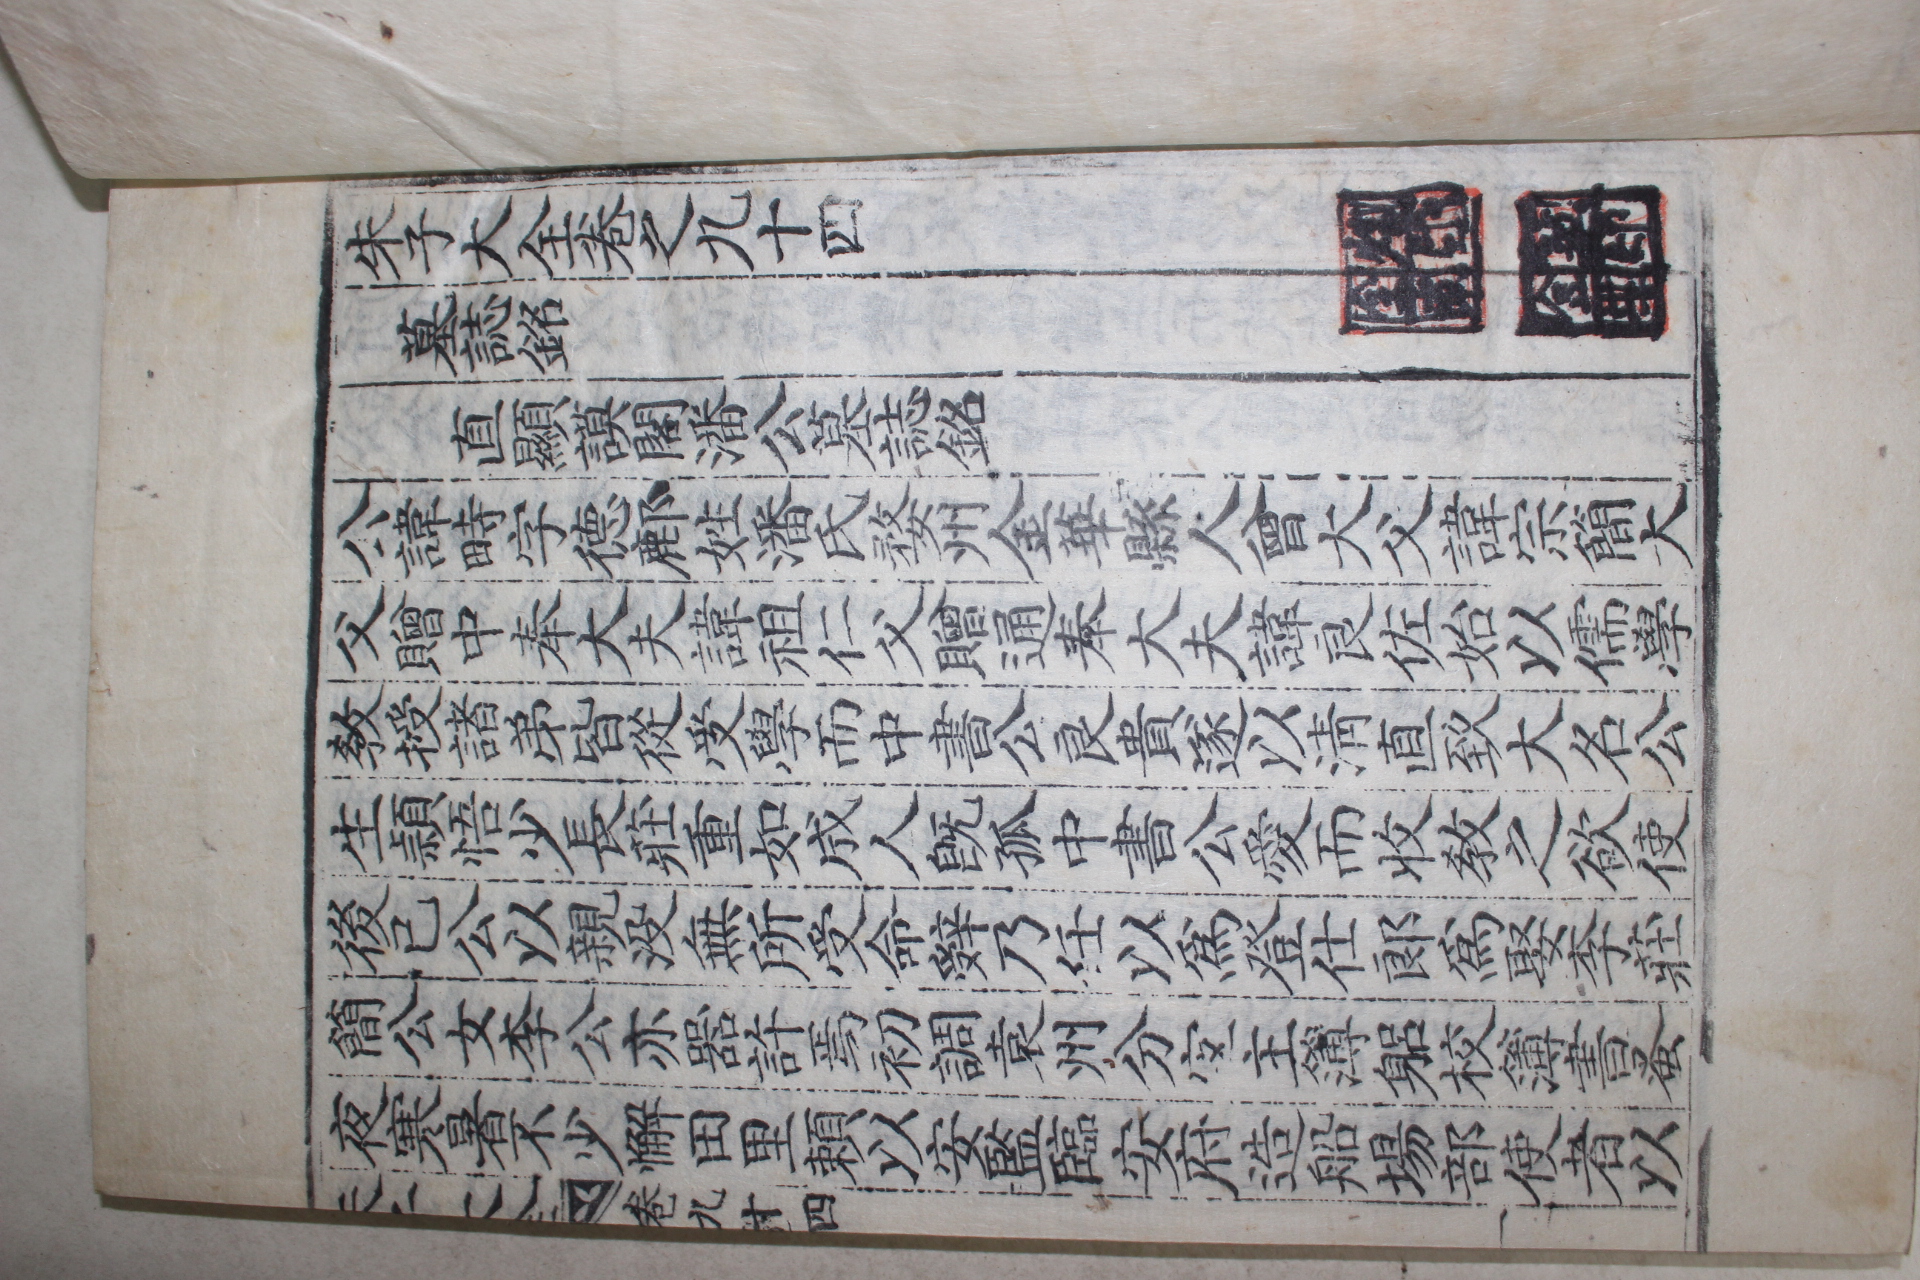 朱子大全卷之九十四
墓誌銘
直顯謨閣潘公墓誌銘
公諱畤字德鄜姓潘氏婺州金華縣人曾大父諱宗簡大
父贈中奉大夫諱祖仁父贈通奉大夫諱良佐始以儒學
教授諸弟皆從受學而中書公良貴遂以清直致大名公
生穎悟少長莊重如成人既孤中書公愛而收教之欲使
後己公以親没無所受命辭乃任以爲登仕郎爲娶李莊
簡公女李公亦器許焉初調袁州分宜主簿躬校簿書蚤
夜寒暑不少懈田里頼以安監臨安府造船場部使者以
卷九十四